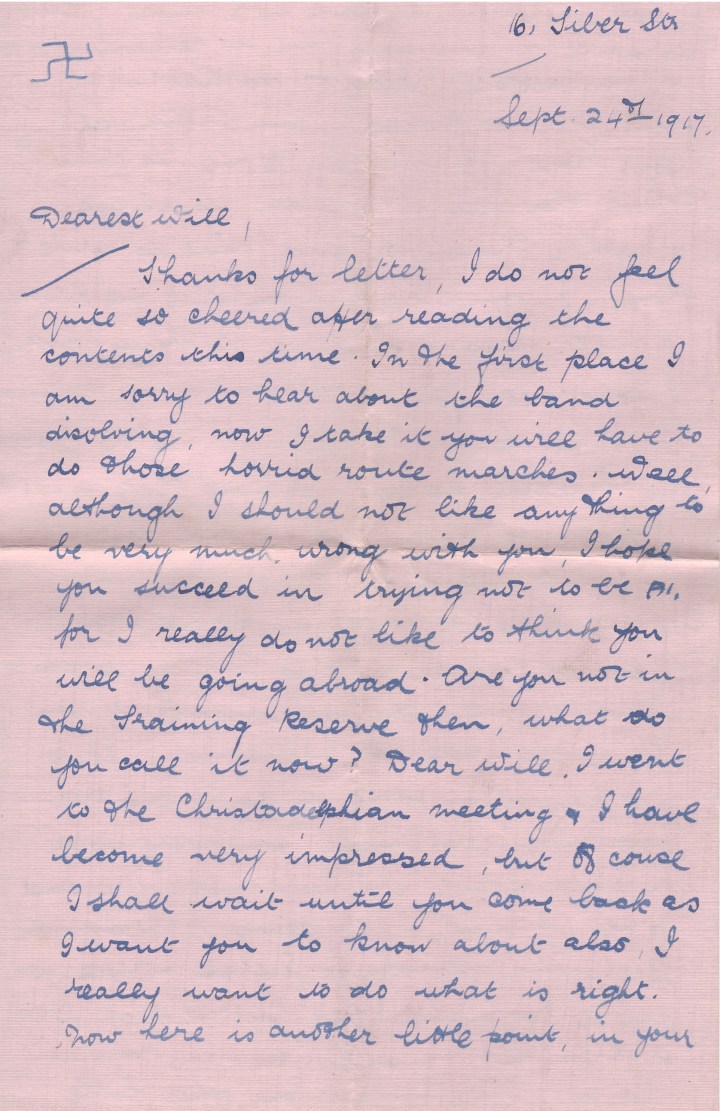 16, Silver Str
Sept. 24th 1917.
Dearest Will,
Thanks for letter, I do not feel
quite so cheered after reading the
contents this time. In the first place I
am sorry to hear about the band
disolving, now I take it you will have to
do those horrid route marches. Well,
although I should not like anything to
be very much wrong with you, I hope
you succeed in trying not to be A1,
for I really do not like to think you
will be going abroad. Are you not in
the Training Reserve then, what do
you call it now? Dear Will, I went
to the Christadelphian meeting & I have
become very impressed, but of couse
I shall wait until you come back as
I want you to know about also, I
really want to do what is right.
Now here is another little point, in your